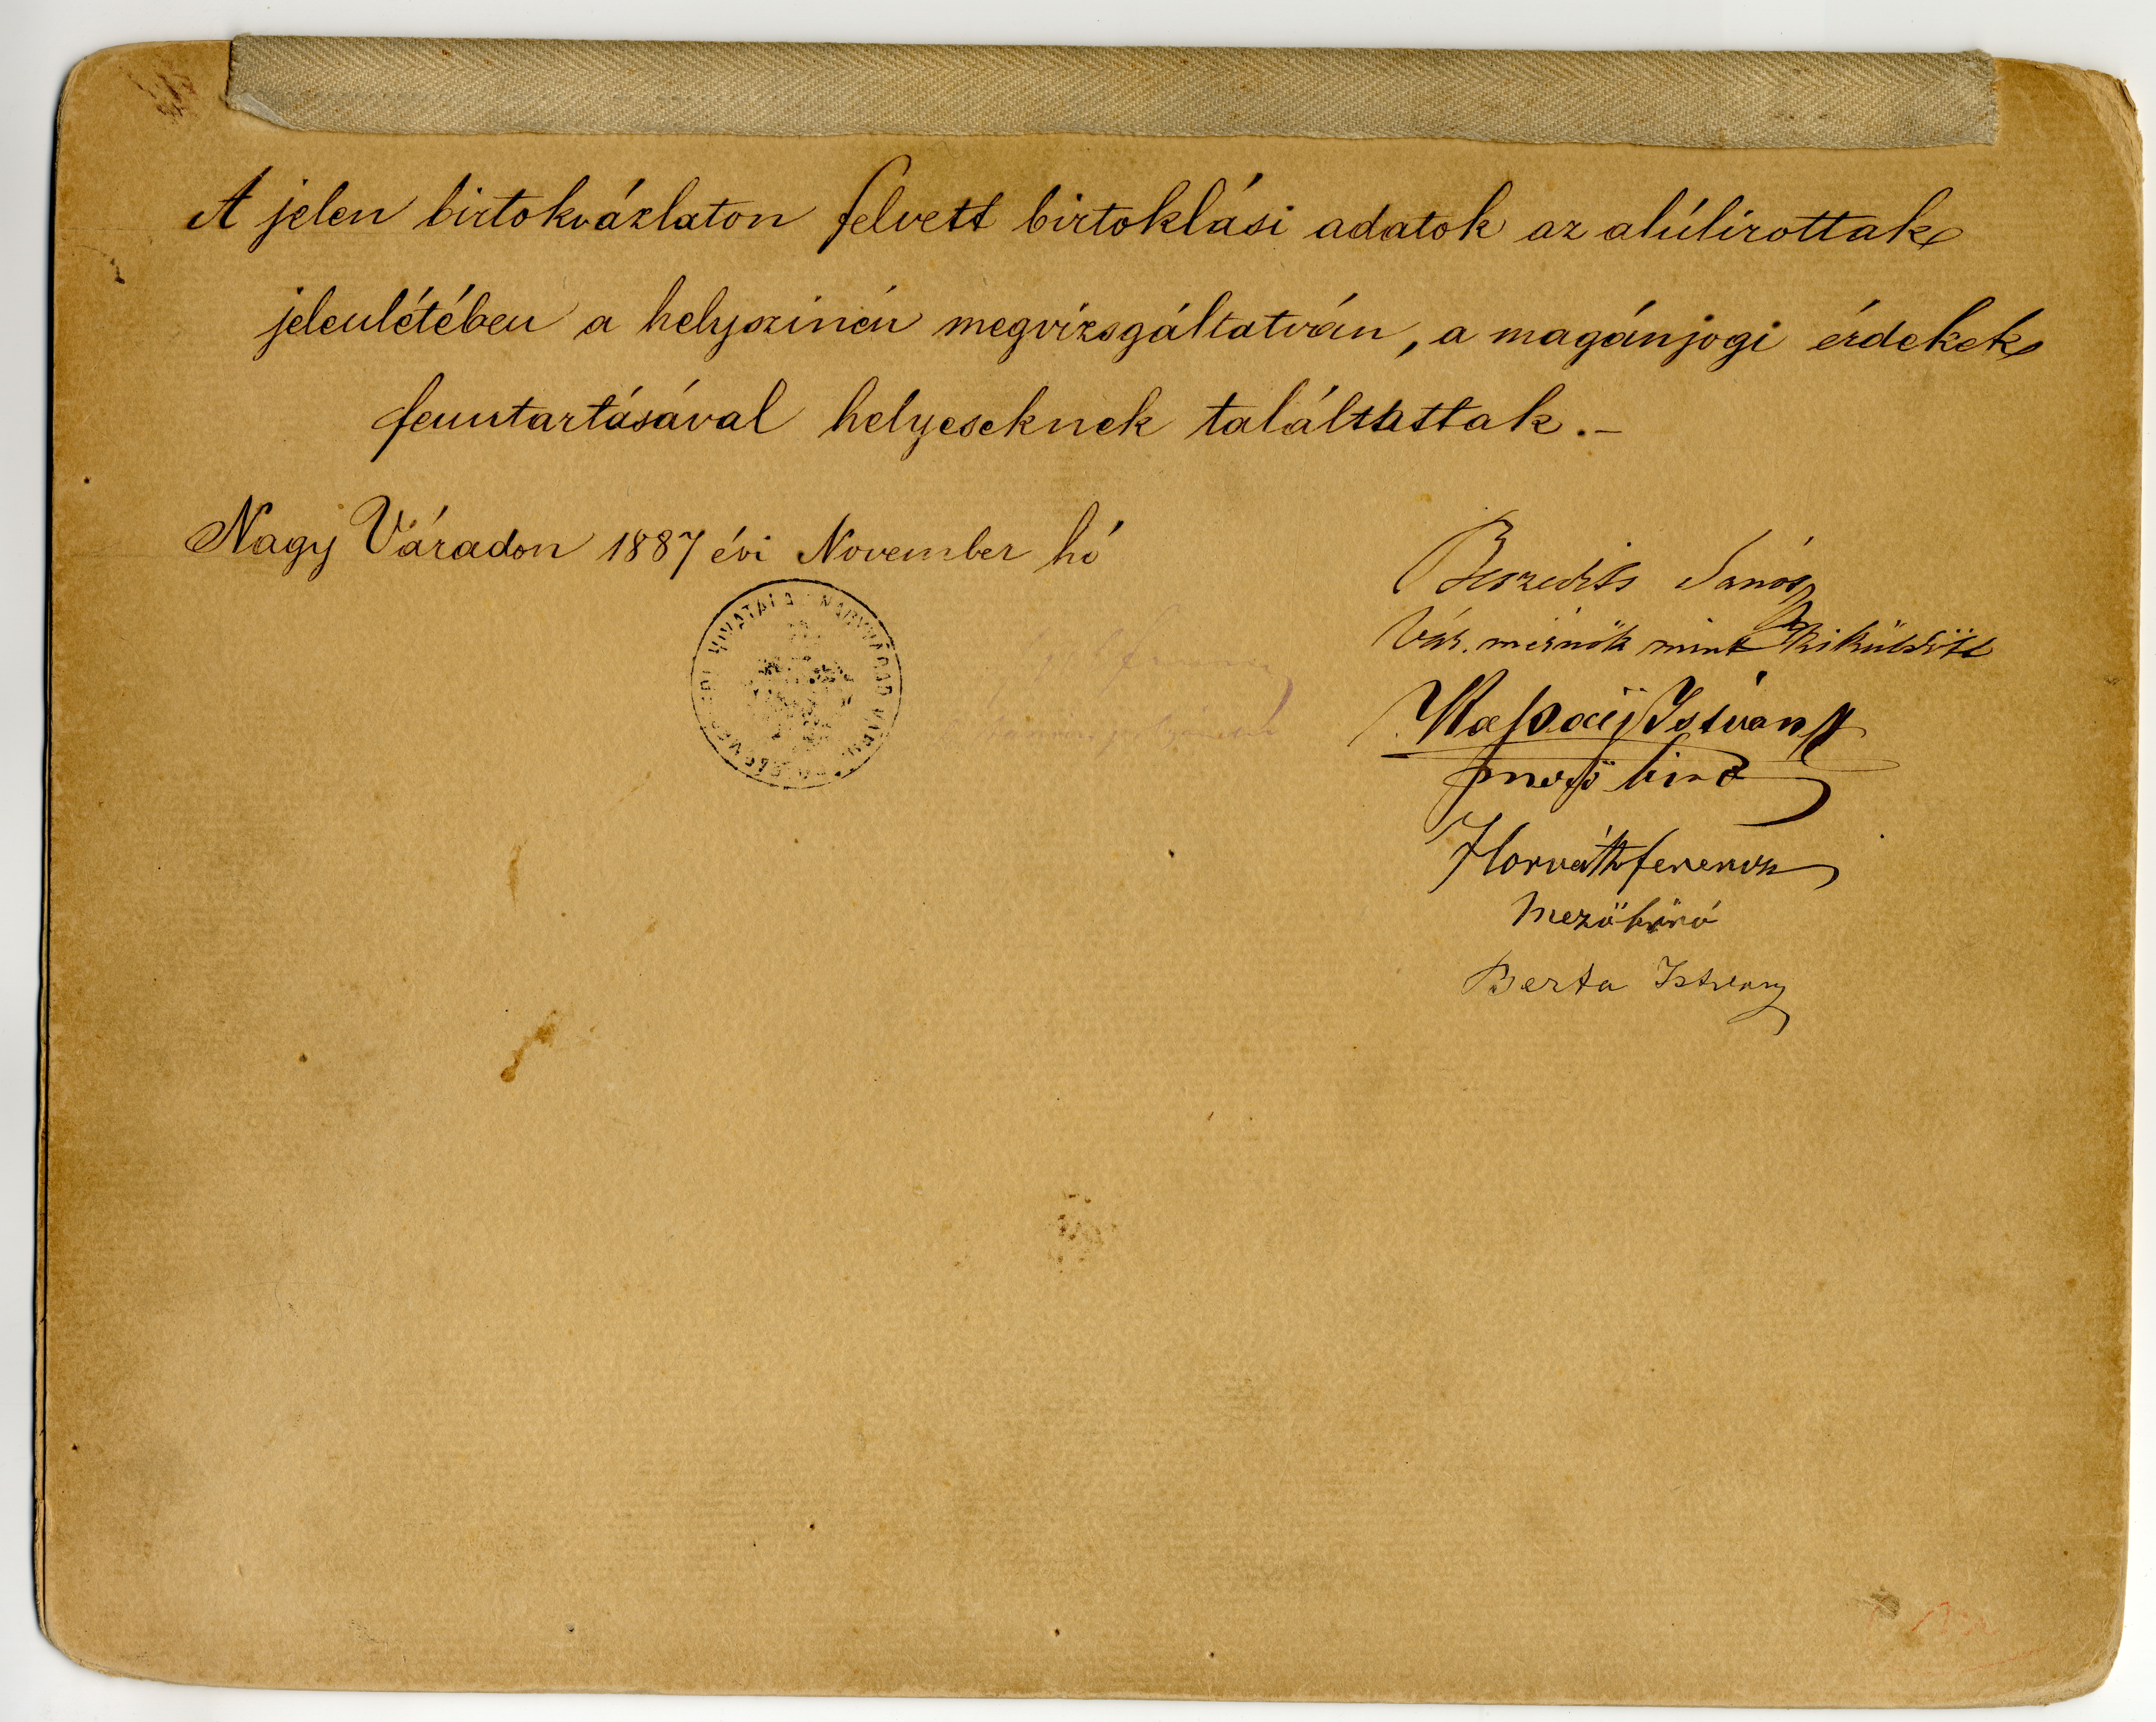 A jelen birtokvázlaton felvett birtoklási adatok az alúlirottak
jelenlétében a helyszinén megvizsgáltatván, a magánjogi érdekek
fenntartásával helyeseknek találtattak.–
Nagy Váradon 1887 évi November hó
Beszedits János
Vár. mérnök mint kiküldött
István
Horváth ferencz
Mezőbíró
Berta Istvany
HIVATALA NAGYVÁRAD